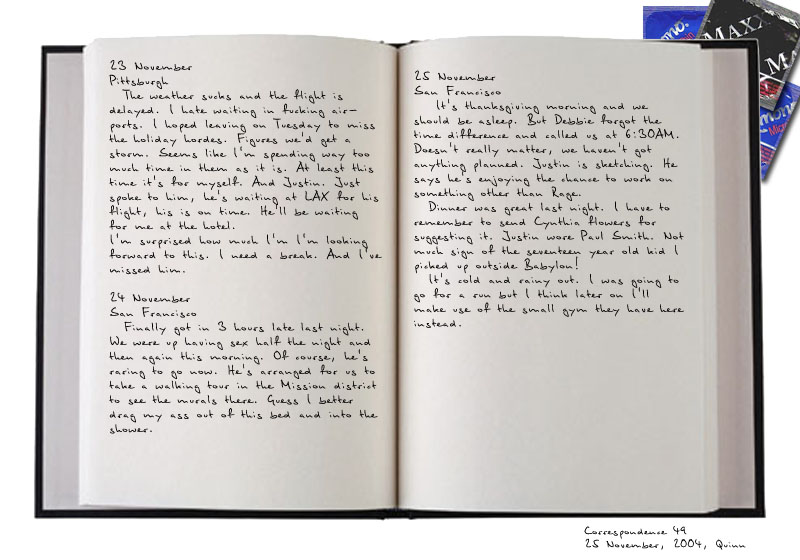 23 November
Pittsburgh
The weather sucks and the flight is
delayed. I hate waiting in fucking air-
ports. I hoped leaving on Tuesday to miss
the holiday hordes. Figures we'd get a
storm. Seems like I'm spending way too
much time in them as it is. At least this
time it's for myself. And Justin. Just
spoke to him, he's waiting at LAX for his
flight, his is on time. He'll be waiting
for me at the hotel.
I'm surprised how much I'm I'm looking
forward to this. I need a break. And I've
missed him.
24 November
San Francisco
Finally got in 3 hours late last night.
We were up having sex half the night and
then again this morning. Of course, he's
raring to go now. He's arranged for us to
take a walking tour in the Mission district
to see the murals there. Guess I better
drag my ass out of this bed and into the
shower.
25 November
San Francisco
It's thanksgiving morning and we
should be asleep. But Debbie forgot the
time difference and called us at 6:30AM.
Doesn't really matter, we haven't got
anything planned. Justin is sketching. He
says he's enjoying the chance to work on
something other than Rage.
Dinner was great last night. I have to
remember to send Cynthia flowers for
suggesting it. Justin wore Paul Smith. Not
much sign of the seventeen year old kid I
picked up outside Babylon!
It's cold and rainy out. I was going to
go for a run but I think later on I'll
make use of the small gym they have here
instead.
MAXX
Correspondence 49
25 November, 2004, Quinn